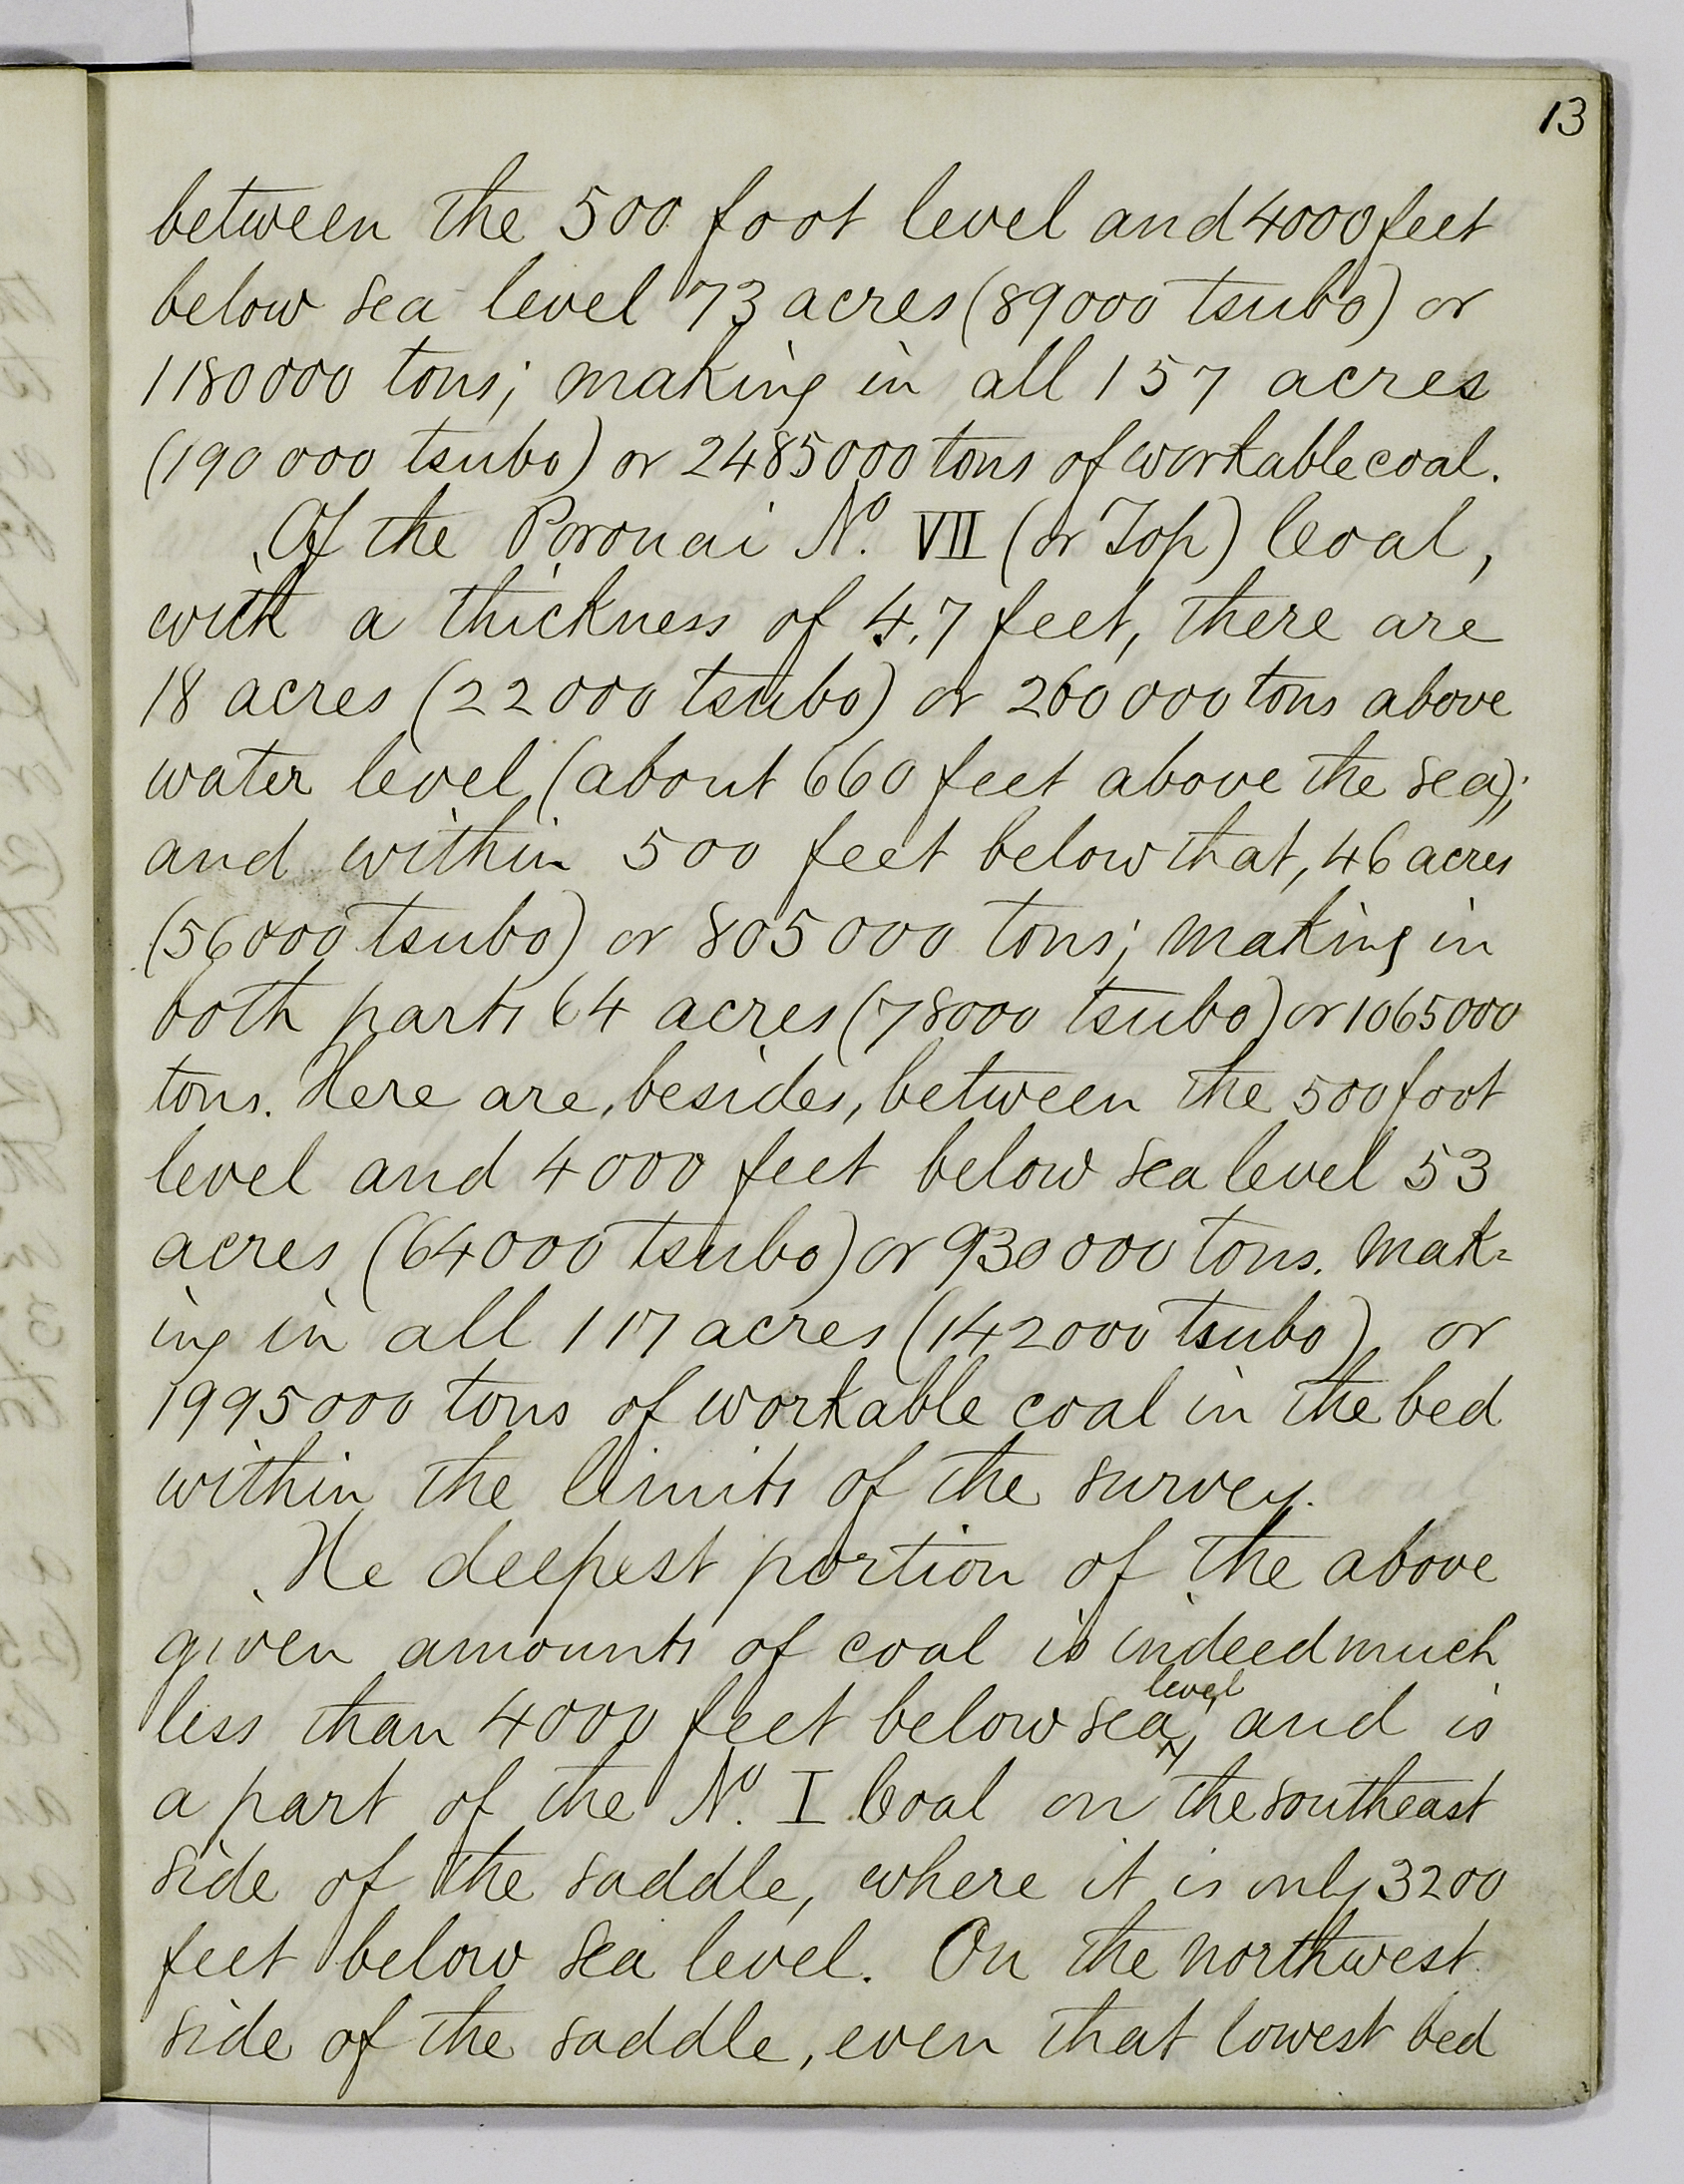 13
between the 500 foot level and 4000 feet
below sea level 73 acres (89000 tsubo) or
1180000 tons; making in all 157 acres
(190000 tsubo) or 2485000 tons of workable coal.
Of the Poronai No. VII (or Top) Coal,
with a thickness of 4.7 feet, there are
18 acres (22000 tsubo) or 260000 tons above
water level (about 660 feet above the sea);
and within 500 feet below that, 46 acres
(56000 tsubo) or 805000 tons; making in
both parts 64 acres (78000 tsubo) or 1065000
tons. Here are, besides, between the 500 foot
level and 4000 feet below sea level 53
acres (64000 tsubo) or 930000 tons. mak=
ing in all 117 acres (142000 tsubo) or
1995000 tons of workable coal in the bed
within the limits of the survey.
The deepest portion of the above
given amounts of coal is indeed much
less than 4000 feet below sea level, and is
a part of the No. I Coal on the southeast
side of the saddle, where it is only 3200
feet below sea level. On the northwest
side of the saddle, even that lowest bed